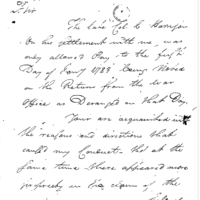 The late Col. C. Harrison
On his settlement with me was
only allowed Pay to the first
Day of Jany 1783 being Noted
on the Return from the War
Office as Deranged on that Day.
Your are acquainted with
the reasons and directions that
caused my Conduct. But at the
same time there appeared more
propriety in the claim of the